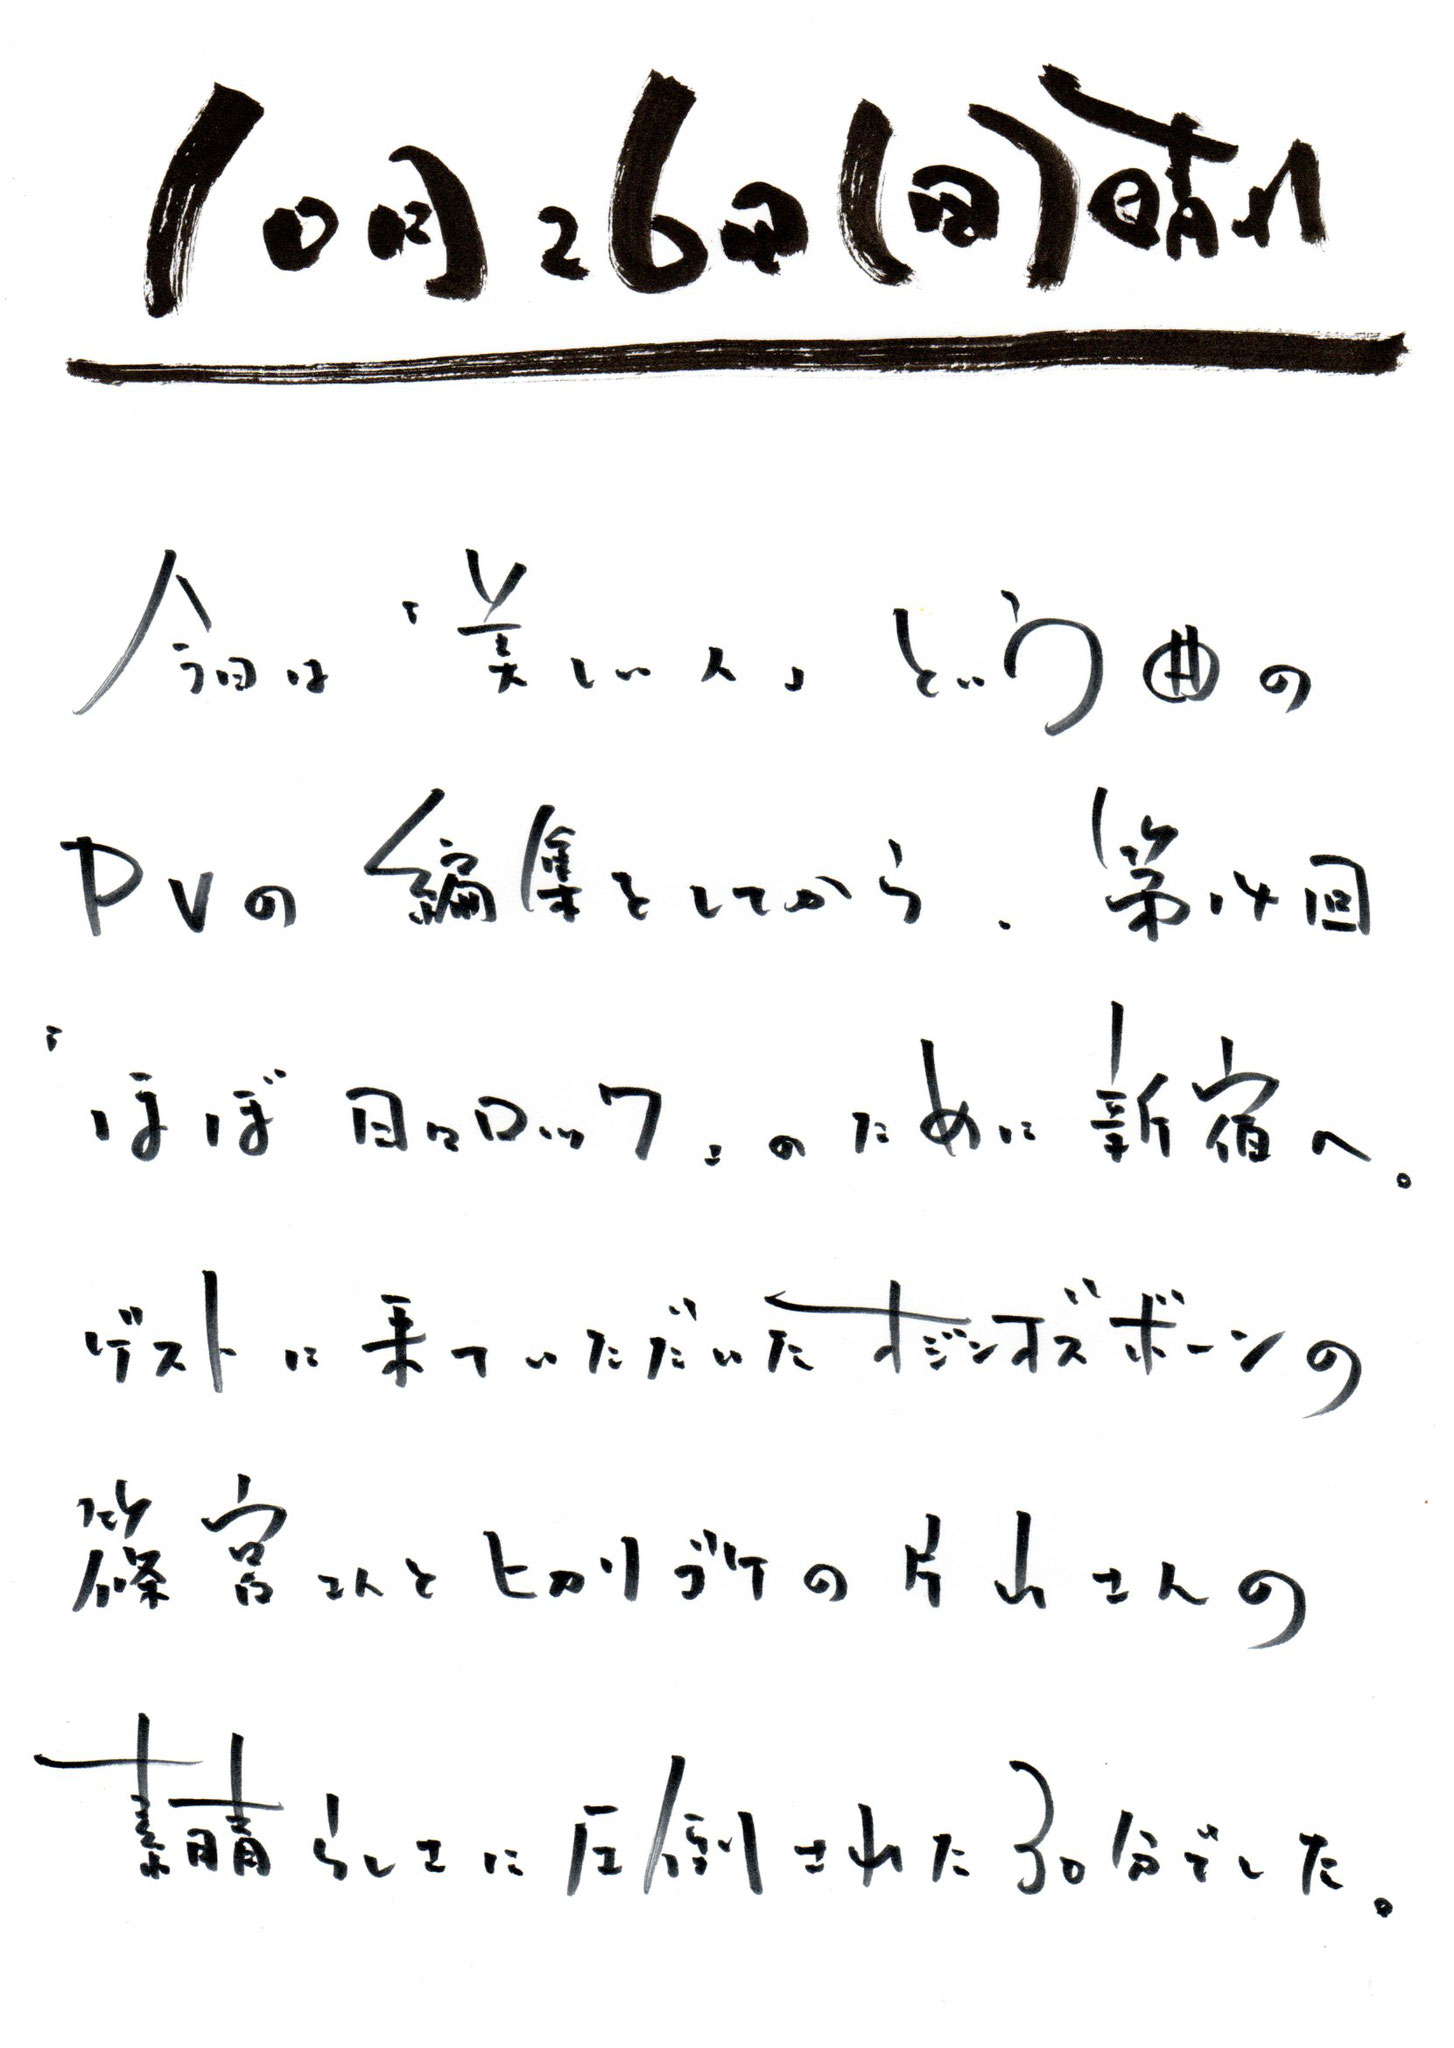 10月26日(日)晴れ
今日は「美しい人」という曲の
PVの編集をしてから、第14回
「ほぼ日々ロック」のために新宿へ。
ゲストに来ていただいたオジンオズボーンの
篠宮さんとヒカリゴケの片山さんの
素晴らしさに圧倒された30分でした。